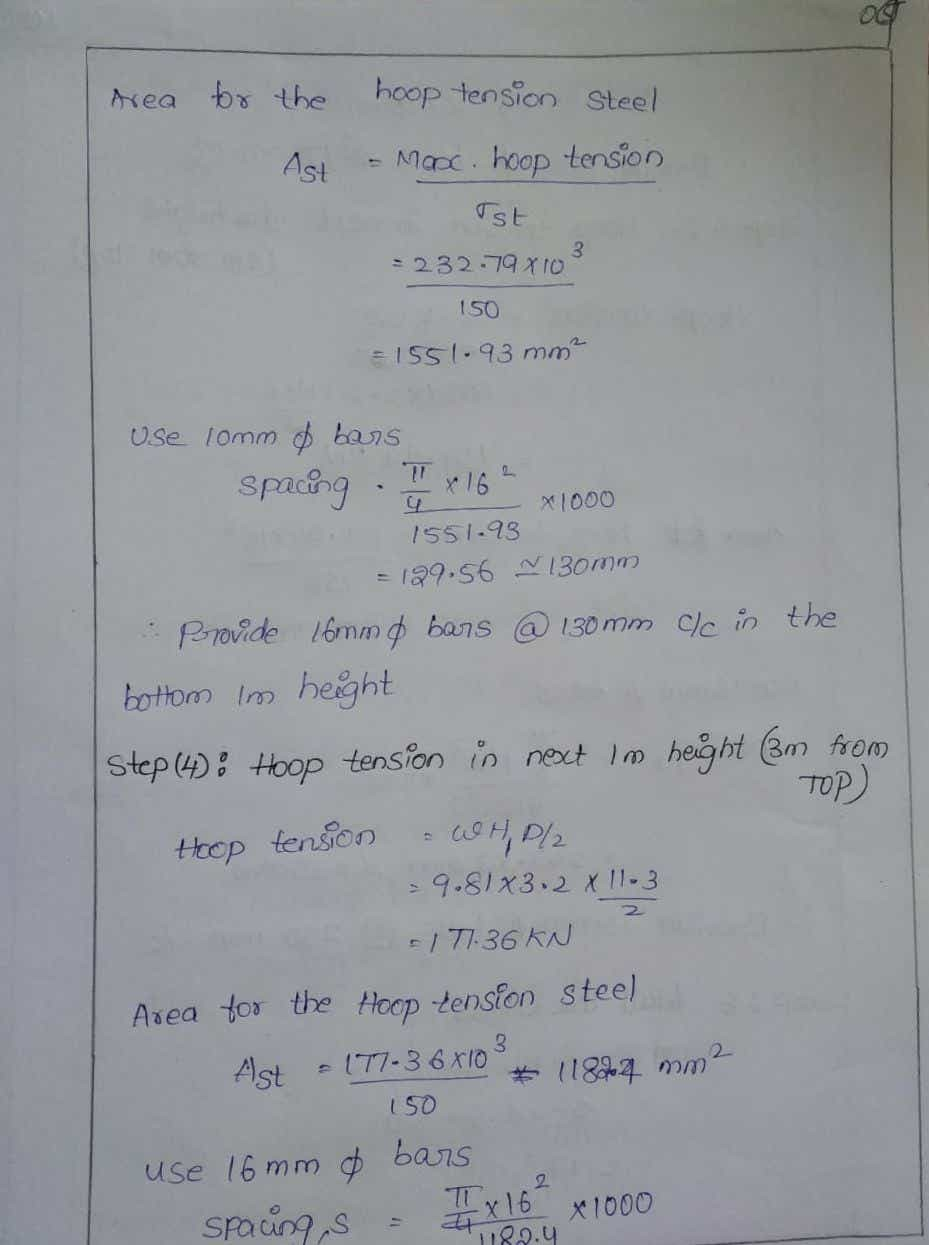 Area for the hoop tension steel
Ast = Max. hoop tension
σst
= 232.79 x 10³
150
= 1551.93 mm²
Use 10mm ϕ bars
spacing . π/4 x 16² x 1000
1551.93
= 129.56 ≃ 130mm
∴ Provide 16mm ϕ bars @ 130mm c/c in the
bottom 1m height
Step (4): Hoop tension in next 1m height (3m from
TOP)
Hoop tension = ωH₁D/2
= 9.81 x 3.2 x 11.3
2
= 177.36 KN
Area for the Hoop tension steel
Ast = 177.36 x 10³ = 1182.4 mm²
150
use 16mm ϕ bars
spacing, s = π/4 x 16² x 1000
1182.4